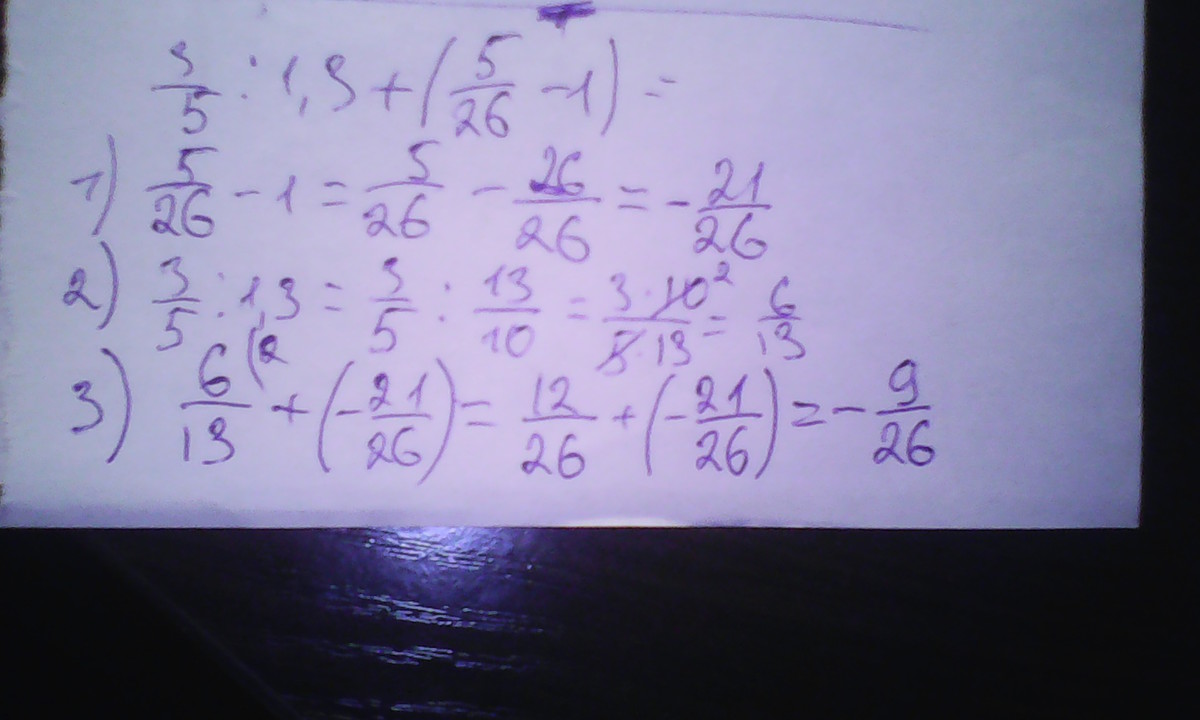 3/5 : 1,3 + (5/26 - 1) =
1) 5/26 - 1 = 5/26 - 26/26 = - 21/26
2) 3/5 : 1,3 = 3/5 : 13/10 = 3 · 10 2 / 5 · 13 = 6/13
3) 6(2/13 + (- 21/26) = 12/26 + (- 21/26) = - 9/26